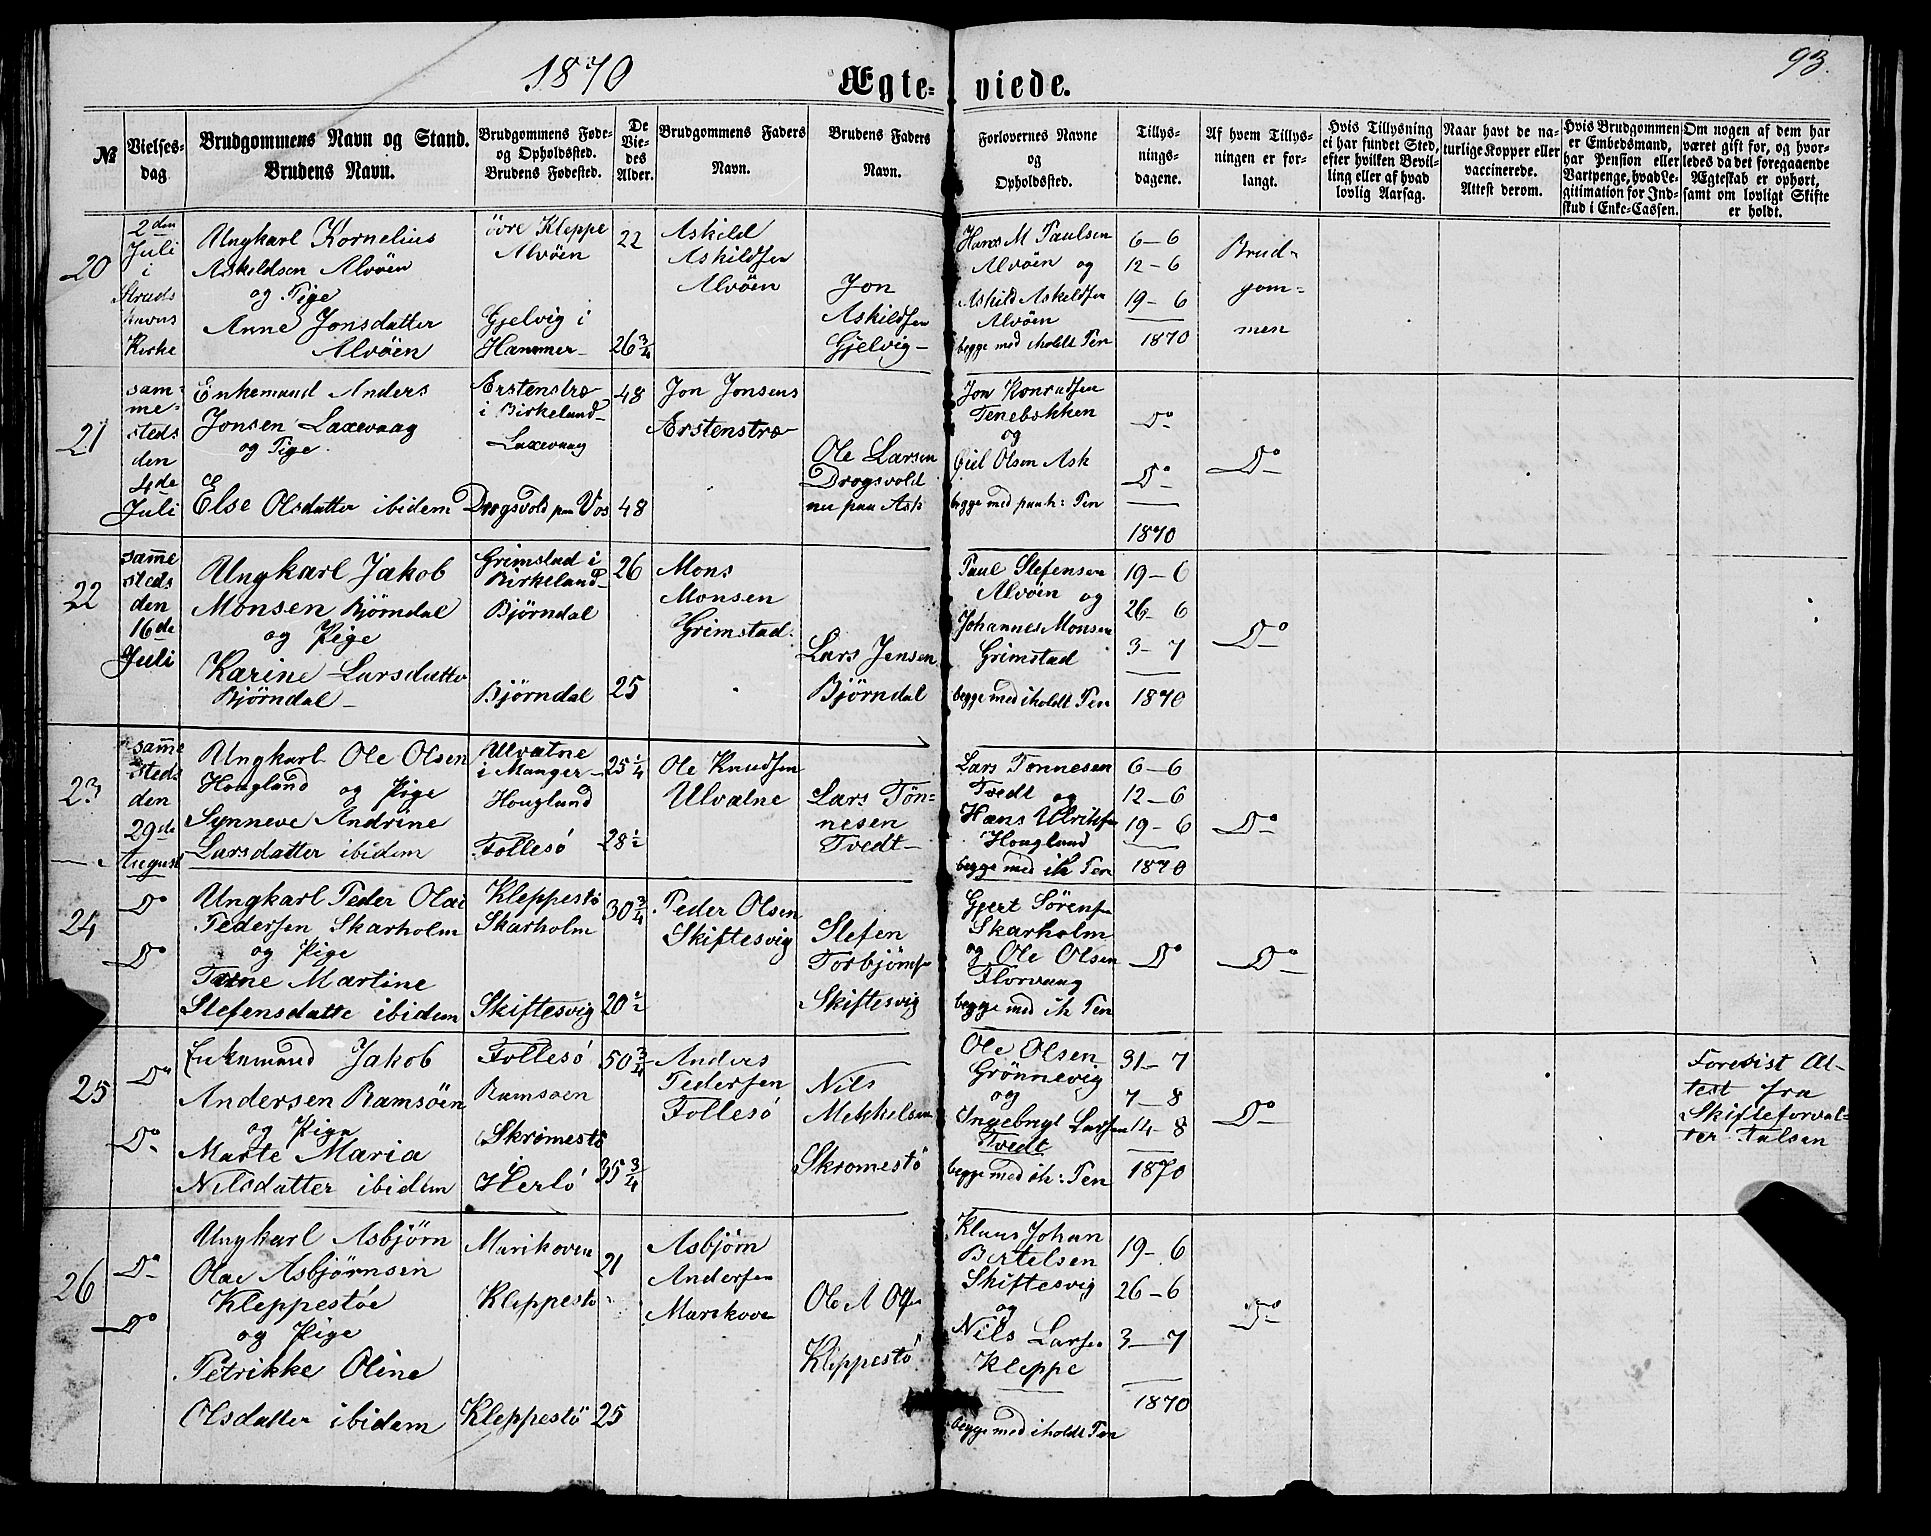 1870
Ægte-
viede.
93.
№
Vielses-
dag
Brudgommens Navn og Stand.
Brudens Navn.
Brudgommens Føde-
og Opholdssted.
Brudens Fødested.
De
Vie-
des
Alder.
Brudgommens Faders
Navn.
Brudens Faders
Navn.
Forlovernes Navne
og
Opholdssted.
Tillys-
nings-
dagene.
Af hvem Tillys-
ningen er for-
langt.
Hvis Tillysning
ei har fundet Sted,
efter hvilken Bevil-
ling eller af hvad
lovlig Aarsag.
Naar havt de na-
turlige Kopper eller
vaccinerede.
Attest derom.
Hvis Brudgommen
er Embedsmand,
har Pension eller
Vartpenge, hvad Le-
gitimation for Ind-
skud i Enke-Cassen.
Om nogen af dem har
været gift for, og hvor-
ledes da det foregaaende
Ægteskab er ophørt,
samt om lovligt Skifte
er holdt.
20
2den
Juli
i
Struds
havns
Kirke
Ungkarl Kornelius
Askeldsen Alvöen
og Pige
Anne Jonsdatter
Alvöen
övre Kleppe
Alvöen
Gjelvig i
Hammer
22
26 3/4
Askild
Askildsen
Alvöen
Jon
Askildsen
Gjelvig
Hans M Paulsen
Alvöen og
Askild Askeldsen
Alvöen
begge med iholdt Pen
6-6
12-6
19-6
1870
Brud-
gom-
men
21
sam-
me-
steds
den
4de
Juli
Enkemand Anders
Jonsen Laxevaag
og Pige
Else Olsdatter ibidem
Erstenstræ
i Birkeland
Laxevaag
Drogsvold paa Vos
48
48
Jon Jonsens
Erstenstræ
Ole Larsen
Drogsvold
nu paa Ask
Jon Konradsen
Tenebækken
og
Giel Olsen Ask
begge med paah: Pen
Do
Do
1870
Do
22
samme
steds
den
16de
Juli
Ungkarl Jakob
Monsen Björndal
og Pige
Karine Larsdatter
Björndal
Grimstad i
Birkeland
Björndal
Björndal
26
25
Mons
Monsen
Grimstad
Lars Jensen
Björndal
Paul Stefensen
Alvöen og
Johannes Monsen
Grimstad
begge med iholdt Pen
19-6
26-6
3-7
1870
Do
23
samme
steds
den
29de
August
Ungkarl Ole Olsen
Hougland og Pige
Synneve Andrine
Larsdatter ibidem
Ulvatne
i Manger
Hougland
Follesö
25 1/4
28 1/2
Ole Knudsen
Ulvatne
Lars Tön-
nesen
Tvedt
Lars Tønnesen
Tvedt og
Hans Ulriksen
Hougland
begge med ih Pen
6-6
12-6
19-6
1870
Do
24
Do
Do
Ungkarl Peder Olai
Pedersen Skarholm
og Pige
Martine
Stefensdatte ibidem
Kleppestö
Skarholm
Skiftesvig
30 3/4
20 1/2
Peder Olsen
Skiftesvig
Stefen
Torbjörnsen
Skiftesvig
Gjert Sörensen
Skarholm
og Ole Olsen
Florvaag
begge med ih Pen
Do
Do
25
Do
Do
Enkemand Jakob
Andersen Ramsöen
og Pige
Marte Maria
Nilsdatter ibidem
Follesö
Ramsöen
Skrømestö
i Herlö
50 3/4
35 3/4
Anders
Pedersen
Follesö
Nils
Mekkelsen
Skromestö
Ole Olsen
Grönnevig
og
Ingebrigt Larsen
Tvedt
begge med ih: Pen
31-7
7-8
14-8
1870
Do
Forevist At-
test fra
Skifteforval-
ter Falsen
26
Do
Do
Ungkarl Asbjörn
Olai Asbjörnsen
Kleppestöe
og Pige
Petrikke Oline
Olsdatter ibidem
Marikoven
Kleppestö
Kleppestö
21
25
Asbjörn
Andersen
Marikoven
Ole A Olsen
Kleppestö
Klaus Johan
Bertelsen
Skiftesvig
og
Nils Larsen
Kleppe
begge med iholdt Pen
19-6
26-6
3-7
1870
Do